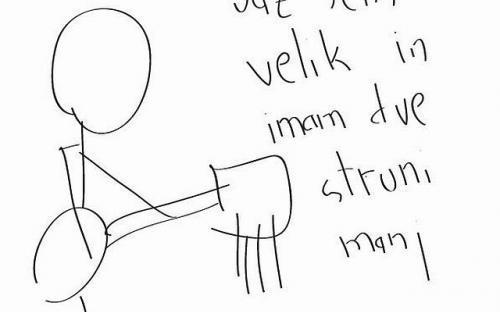 velik in
imam dve
struni
manj